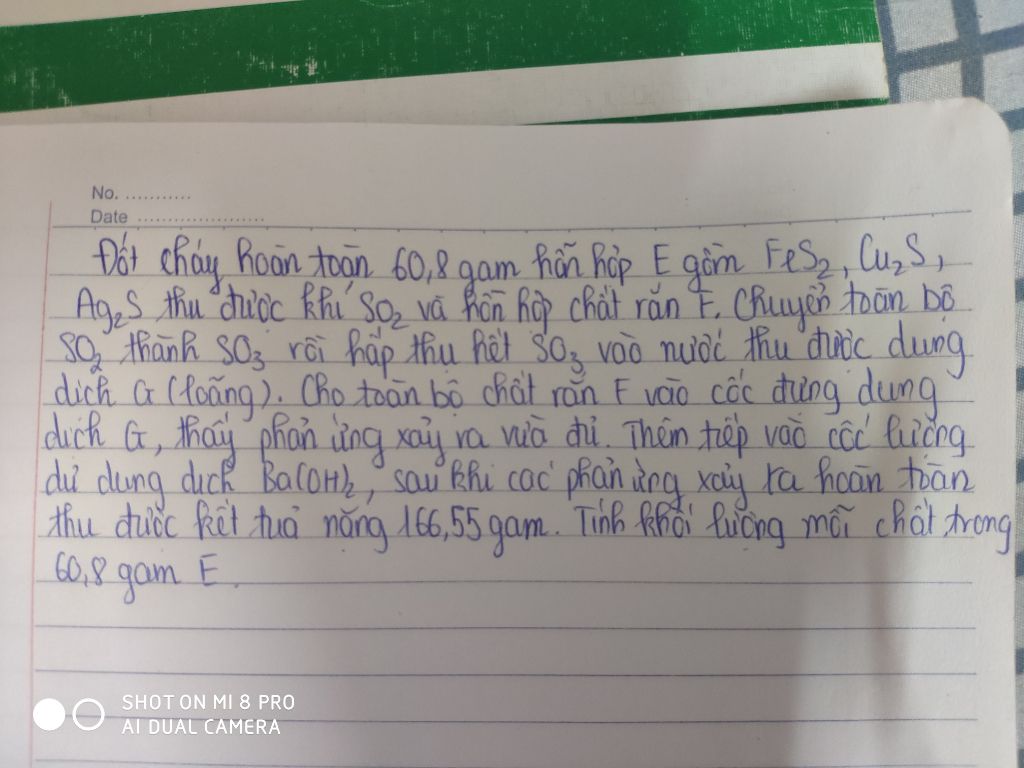 No. ...........
Date .....................
Đốt cháy hoàn toàn 60,8 gam hỗn hợp E gồm FeS2, Cu2S,
Ag2S thu được khí SO2 và hỗn hợp chất rắn F. Chuyển toàn bộ
SO2 thành SO3 rồi hấp thu hết SO3 vào nước thu được dung
dịch G (loãng). Cho toàn bộ chất rắn F vào cốc đựng dung
dịch G, thấy phản ứng xảy ra vừa đủ. Thêm tiếp vào cốc lượng
dư dung dịch Ba(OH)2, sau khi các phản ứng xảy ra hoàn toàn
thu được kết tủa nặng 166,55 gam. Tính khối lượng mỗi chất trong
60,8 gam E.
SHOT ON MI 8 PRO
AI DUAL CAMERA